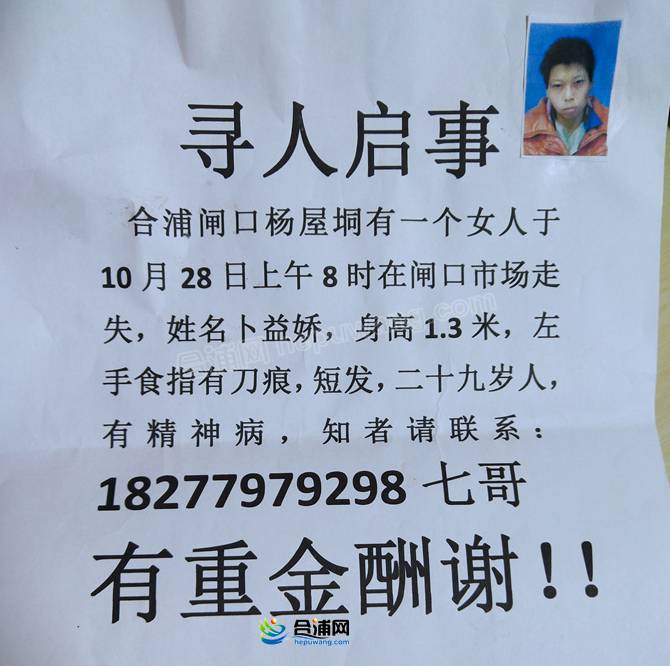 寻人启事
合浦闸口杨屋垌有一个女人于
10月28日上午8时在闸口市场走
失，姓名卜益娇，身高1.3米，左
手食指有刀痕，短发，二十九岁人，
有精神病，知者请联系：
18277979298 七哥
有重金酬谢！！
合浦网 hepuwang.com
合浦网
hepuwang.com